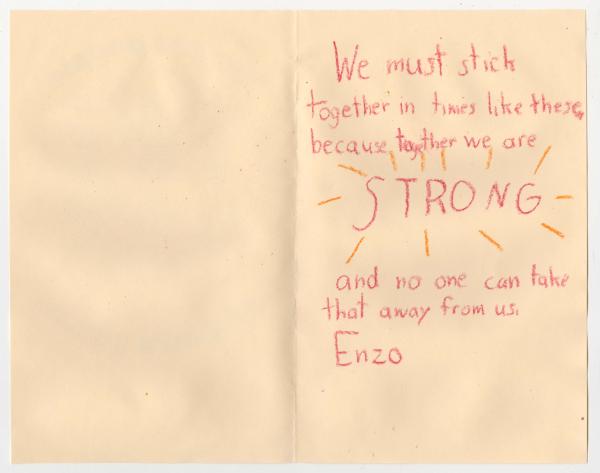 We must stick
together in times like these,
because together we are
STRONG
and no one can take
that away from us.
Enzo